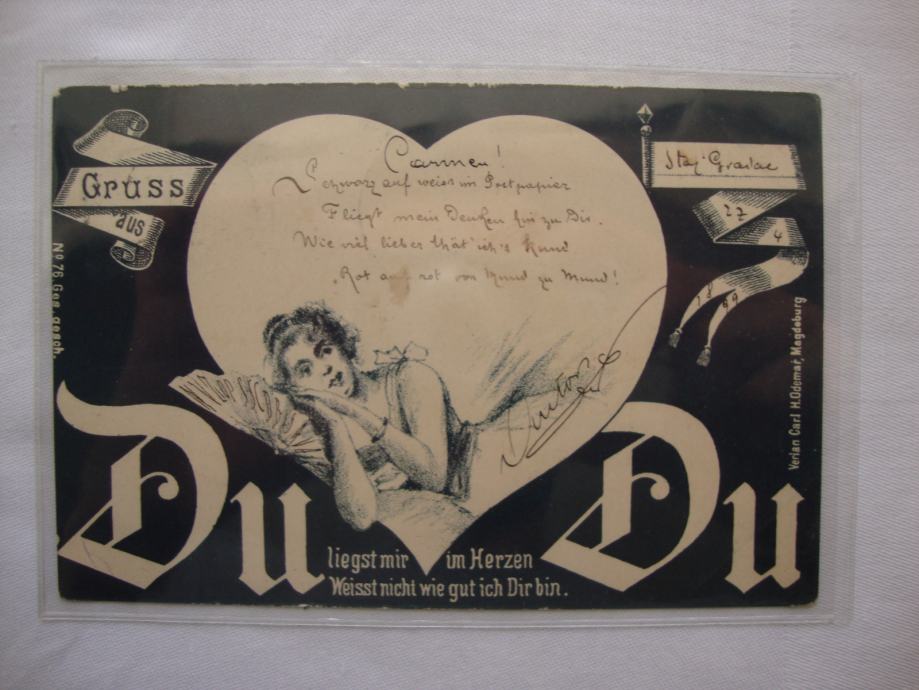 Gruss
aus
27
4
18
99
Carmen!
Schwarz auf weiss im Postpapier
Fliegt mein Denken hin zu Dir.
Wie viel lieber thät ich's kund
Rot auf rot von Mund zu Mund!
No 76 Ges. gesch.
Verlag Carl H. Odemar, Magdeburg
Du Du
liegst mir im Herzen
Weisst nicht wie gut ich Dir bin.